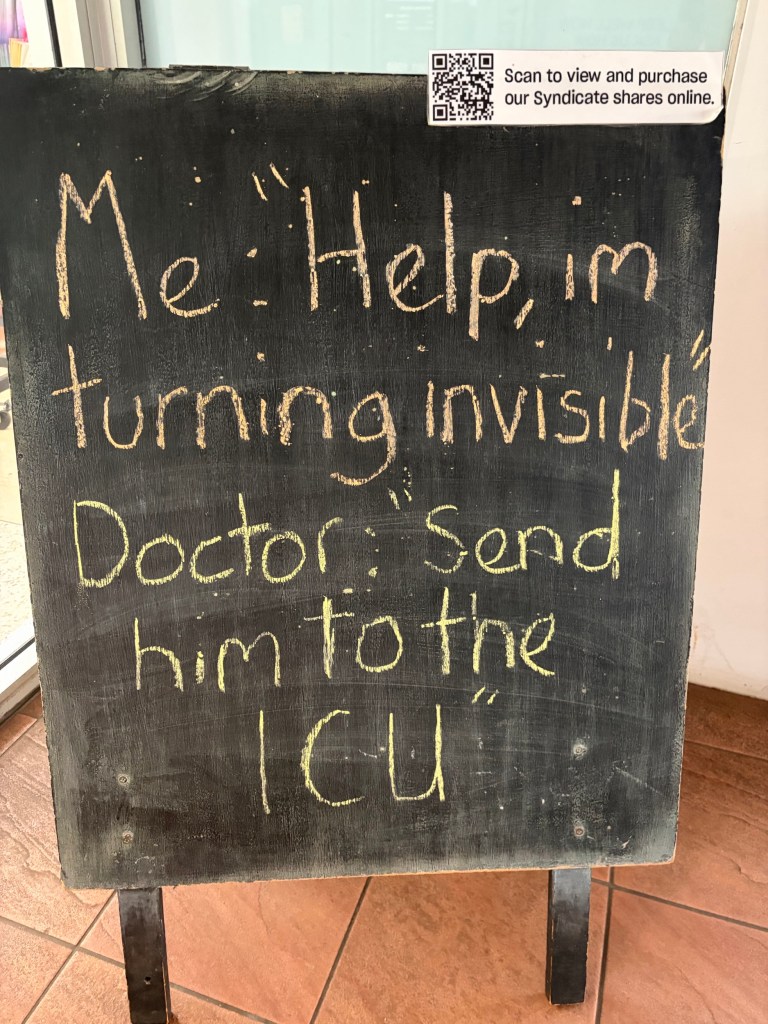 Scan to view and purchase
our Syndicate shares online.
Me: "Help, im
turning invisible"
Doctor: "Send
him to the
ICU"